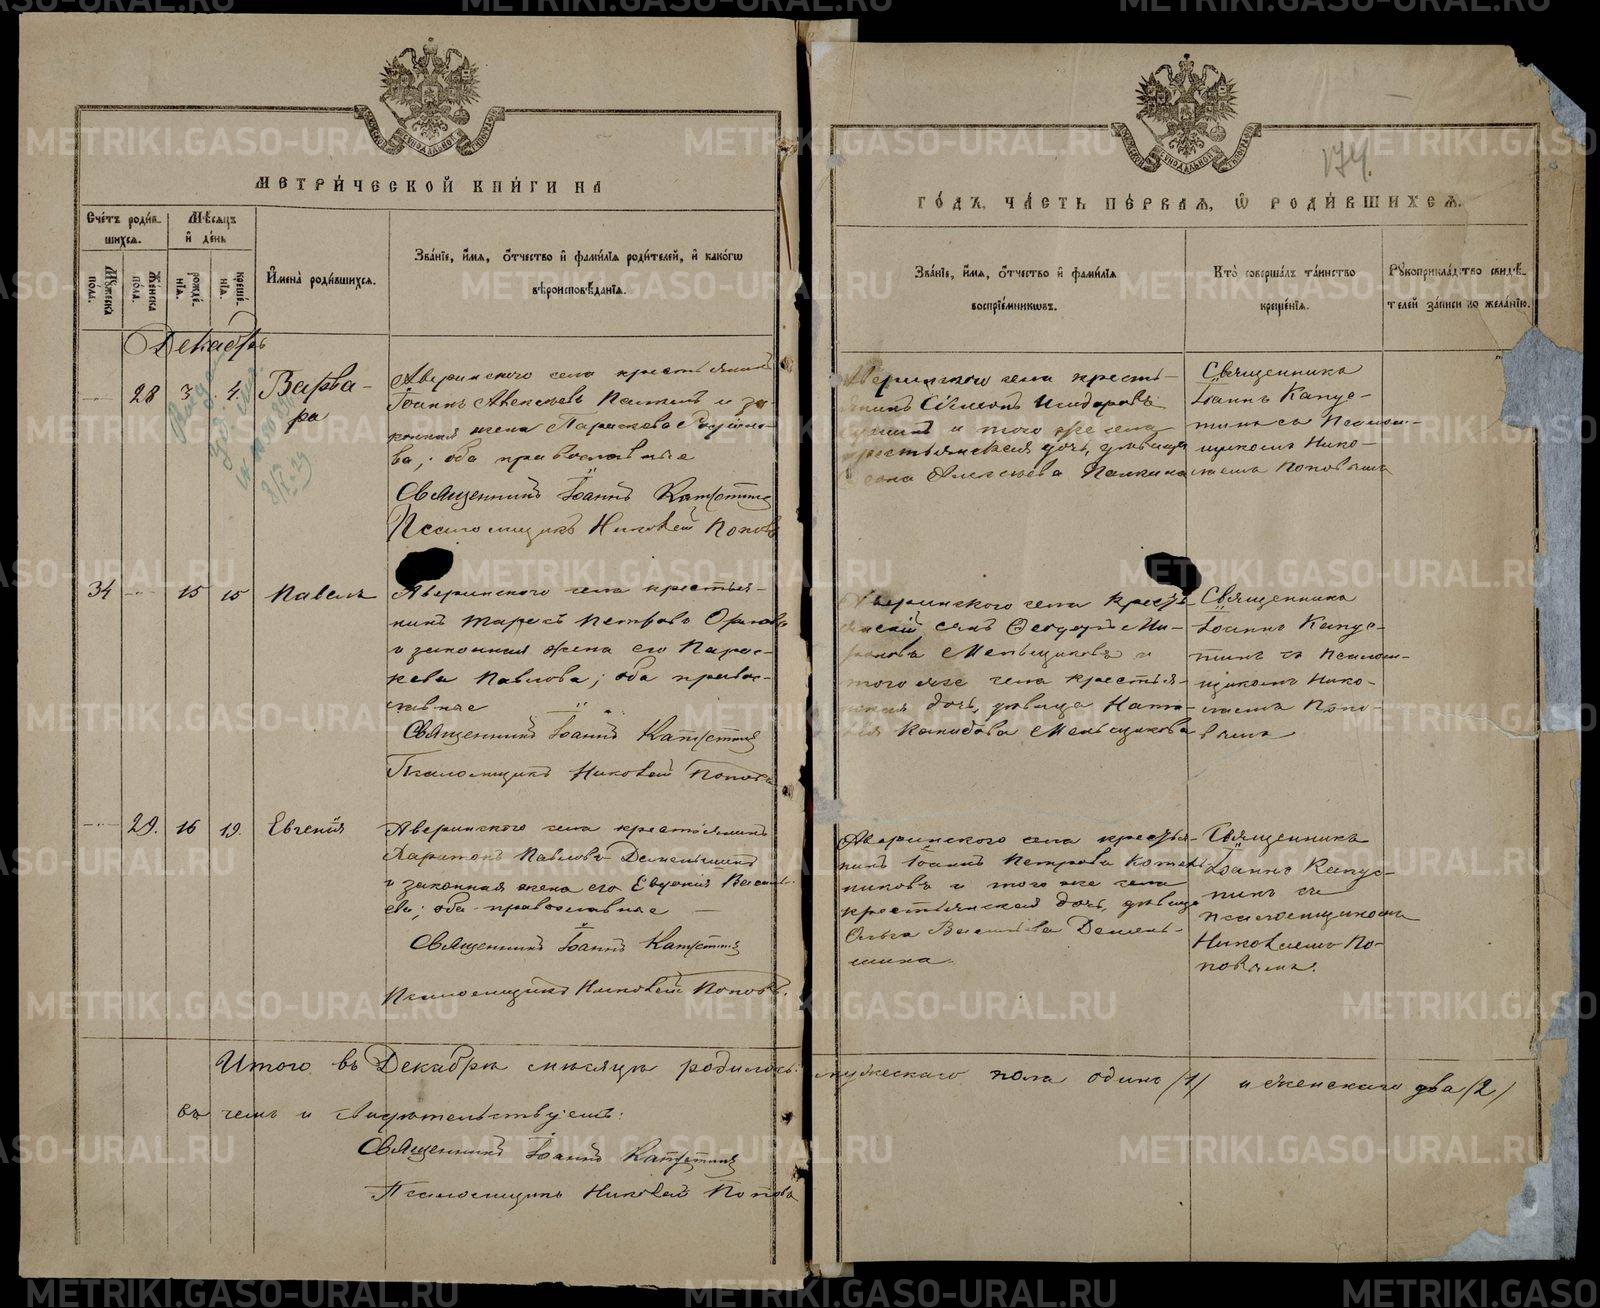 МЕТРИ́ЧЕСКОЙ КНИ́ГИ НА
ГО́ДЪ, ЧА́СТЬ ПЕ́РВАЯ, Ѿ РОДИ́ВШИХСЯ.
174.
Сче́тъ роди́в-
шихся.
Мѣ́сяцъ
и҆ де́нь
И҆мена̀ роди́вшихся.
Зва́нїе, и҆́мя, ѻ҆́тчество и҆ фамѝлїя роди́телей, и҆ како́гѡ
вѣроисповѣ́данїя.
Мꙋ́жеска по́ла.
Же́нска по́ла.
рожде́нїя.
креще́нїя.
Зва́нїе, и҆́мя, ѻ҆́тчество и҆ фамѝлїя
воспрїе́мникѡвъ.
Кто̀ соверша́лъ та́инство
креще́нїя.
Рꙋкоприкла́дство свидѣ́-
телей за́писи по жела́нїю.
Декабрь
28 3 4. Варва-
ра
Аверинского села крестьянинъ
Іоаннъ Алексѣевъ Палкинъ и за-
конная жена Параскева
ва; оба православные
Священникъ Іоаннъ Капустинъ
Псаломщикъ Николай Поповъ
Аверинского села кресть-
янинъ Сѵмеонъ Исидоровъ
и того же села
крестьянская дочь, дѣвица
Алексѣева Палкина
Священникъ
Іоаннъ Капус-
тинъ съ Псалом-
щикомъ Нико-
лаемъ Поповымъ
34 15 15 Павелъ
Аверинского села крестья-
нинъ Тарасъ Петровъ
и законная жена его Парас-
кева Павлова; оба правос-
лавные
Священникъ Іоаннъ Капустинъ
Псаломщикъ Николай Поповъ
Аверинского села кресть-
янскій сынъ Ѳеодоръ Ми-
роновъ Меньщиковъ и
того же села крестья-
нская дочь, дѣвица Ната-
лія Меньщикова
Священникъ
Іоаннъ Капус-
тинъ съ Псалом-
щикомъ Нико-
лаемъ Попо-
вымъ
29. 16 19. Евгенія
Аверинского села крестьянинъ
Харитонъ Павловъ Деменьшинъ
и законная жена его Евдокія Василь-
ева; оба православные
Священникъ Іоаннъ Капустинъ
Псаломщикъ Николай Поповъ.
Аверинского села крестья-
нинъ Іоаннъ Петровъ Котель-
никовъ и того же села
крестьянская дочь, дѣвица
Ольга Васильева Демень-
шина.
Священникъ
Іоаннъ Капус-
тинъ съ
псаломщикомъ
Николаемъ По-
повымъ.
Итого въ Декабрѣ мѣсяцѣ родилось: мужескаго пола одинъ /1/ и женскаго два /2/
въ чемъ и свидѣтельствуемъ:
Священникъ Іоаннъ Капустинъ
Псаломщикъ Николай Поповъ
METRIKI.GASO-URAL.RU